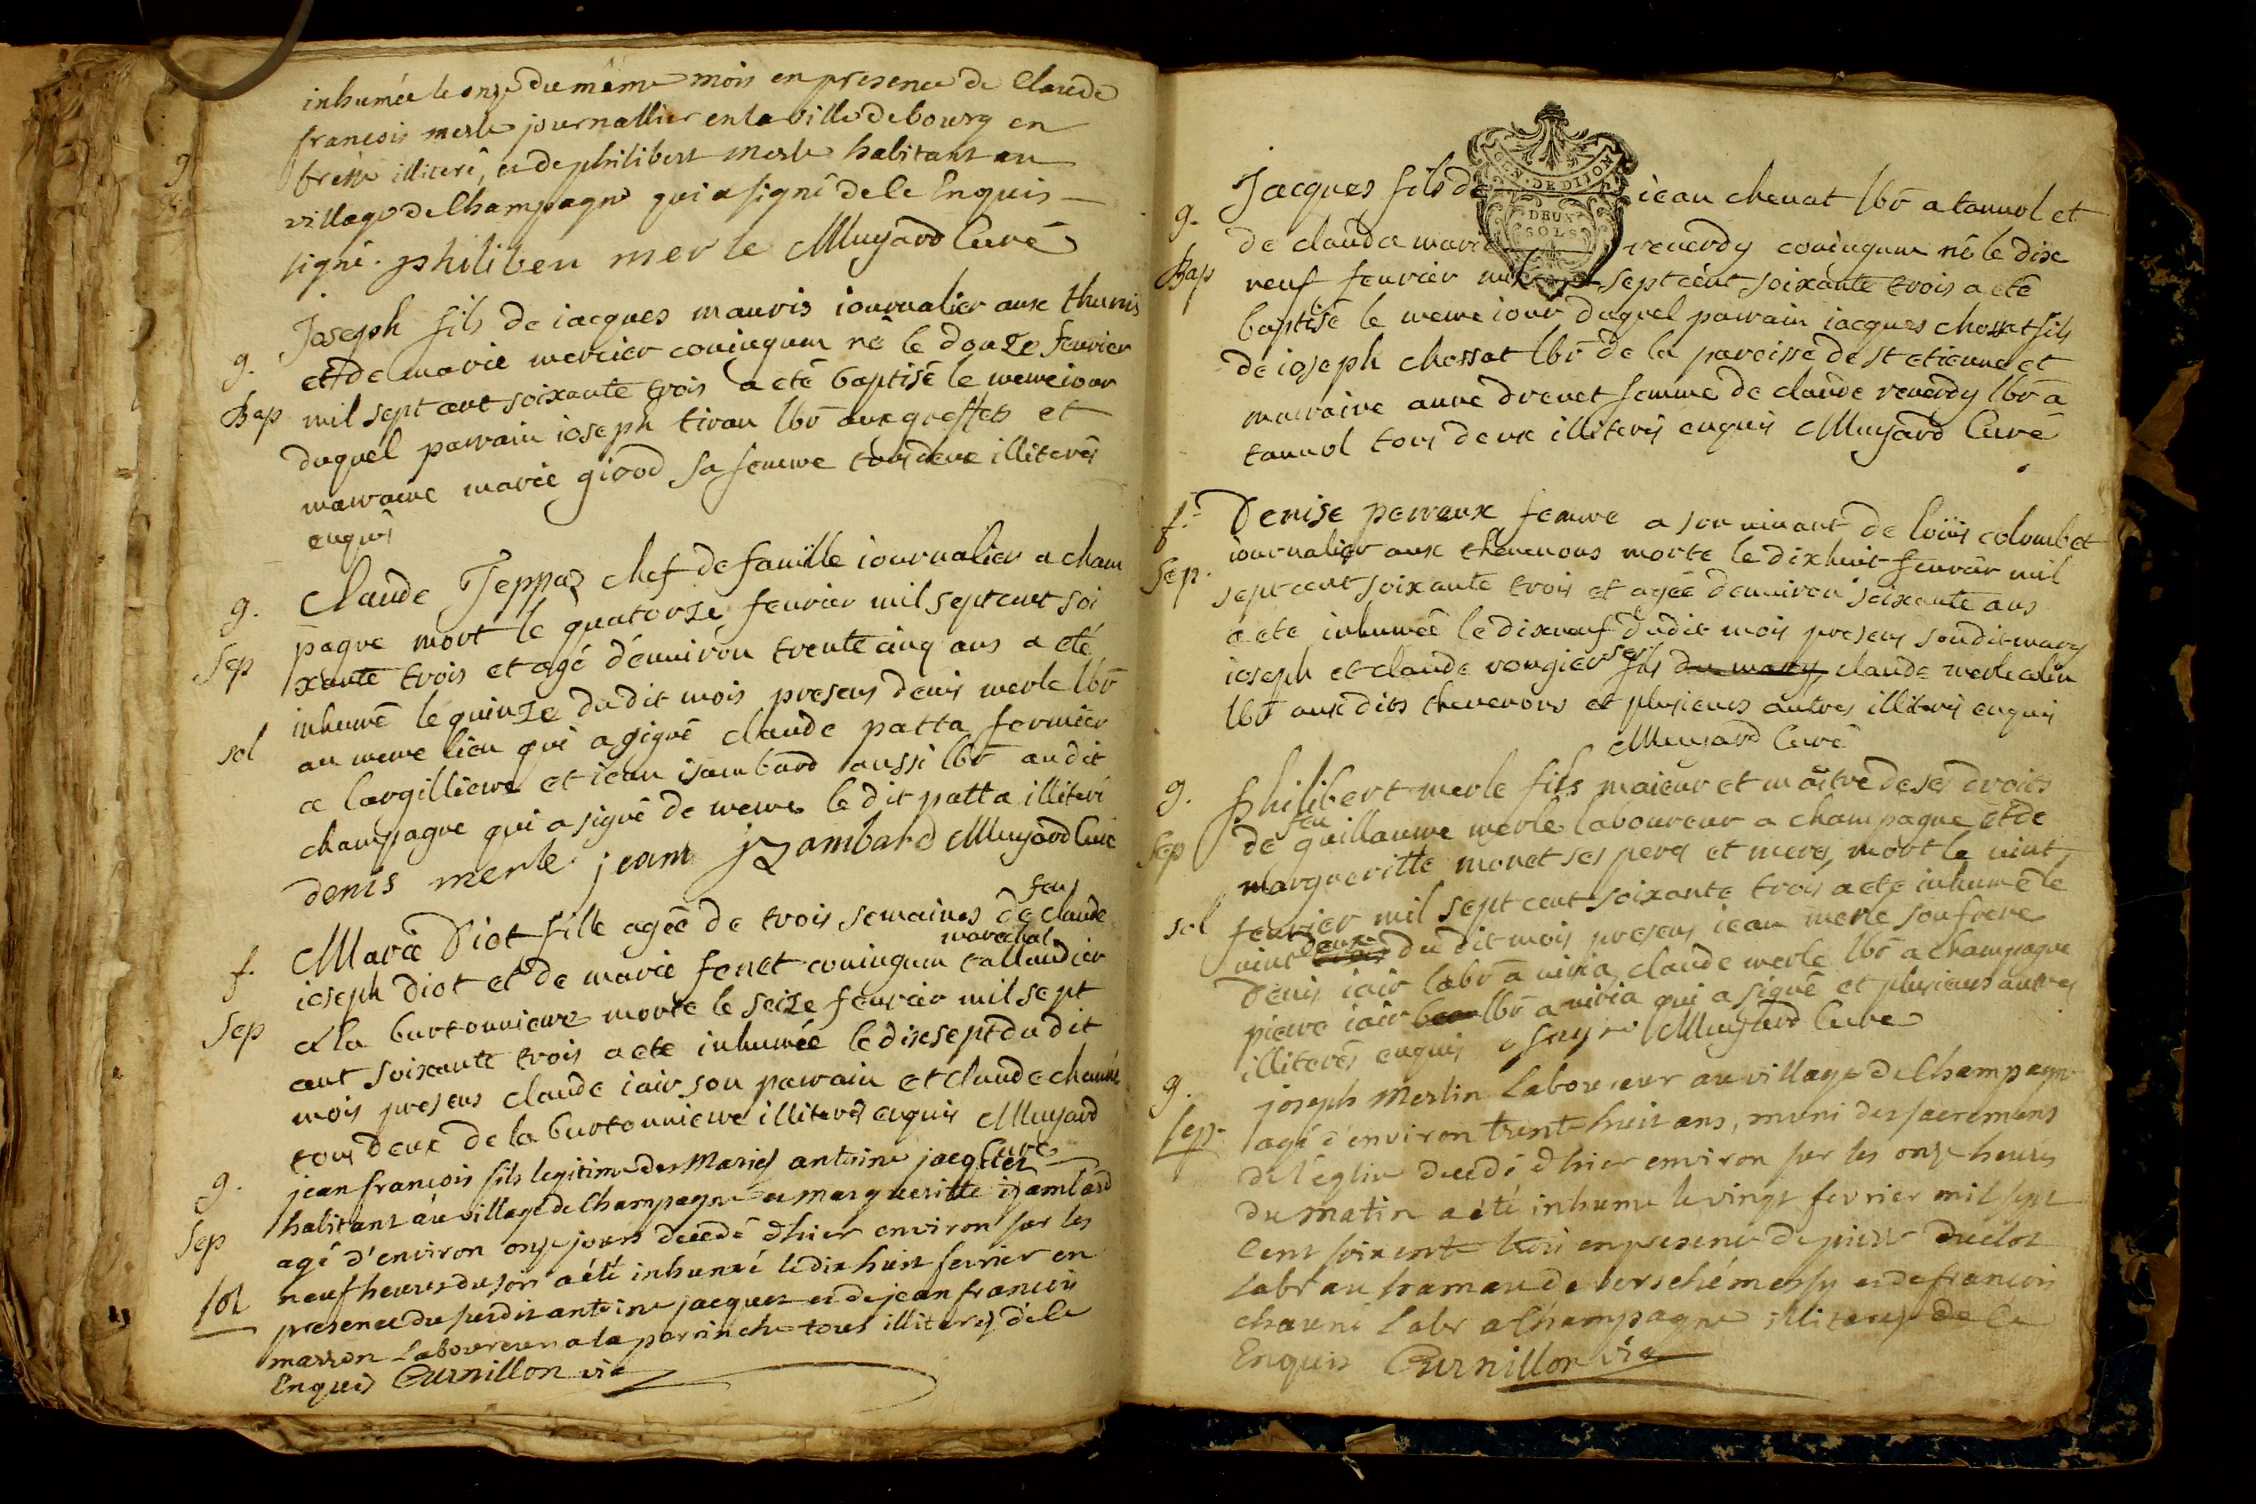 inhumée le onze du même mois en presence de Claude
francois merle journallier en la ville de bourg en
bresse illiteré, et de philibert merle habitant au
village de Champagne qui a signé de ce Enquis
signé. philiber merle Muyard Curé
g.
Bap
Joseph fils de iacques mauris iournalier aux thenis
et de marie mercier coniugum né le douze feurier
mil sept cent soixante trois a eté baptisé le meme iour
duquel parrain ioseph tiran lbr aux greffets et
marraine marie girod sa femme tous deux illiterés
enquis
g.
Sep
sol
Claude Teppaz chef de famille iournalier a cham
pagne mort le quatorze feurier mil sept cent soi
xante trois et agé d'enuiron trente cinq ans a eté
inhumé le quinze du dit mois presens denis merle lbr
au meme lieu qui a signé claude patta fermier
a largilliere et iean isambard aussi lbr au dit
champagne qui a signé de meme le dit patta illiteré
denis merle jeam jzambard Muyard Curé
f.
Sep
Marie Diot fille agée de trois semaines de feu claude
ioseph diot et de marie fenet coniugum marechal tallandier
a la burtonniere morte le seize feurier mil sept
cent soixante trois a eté inhumée le dix sept du dit
mois presens claude iair son parrain et claude chauné
tous deux de la burtonniere illiterés enquis Muyard
Curé
g.
Sep
sol
jean francois fils legitime des Mariés antoine jacquet
habitant au village de Champagne et margueritte izambard
agé d'environ onze jours decedé d'hier environ sur les
neuf heures du soir a été inhumé le dix huit fevrier en
presence du susdit antoine jacquet et de jean francois
marron Laboureur a la perrinche tous illiterez de ce
Enquis Curnillon vic
GEN. DE DIJON
DEUX
SOLS
g.
Bap
Jacques fils de iean chenat lbr a tannol et
de claude marie reuerdy coniugum né le dix
neuf feurier mil sept cent soixante trois a eté
baptisé le meme iour duquel parrain iacques chossat fils
de ioseph chossat lbr de la paroisse de st etienne et
marraine anne drevet femme de claude reuerdy lbr a
tannol tous deux illiterés enquis Muyard Curé
f.
Sep.
Denise perraux femme a son uiuant de loüis colombet
iournalier aux theuenons morte le dix huit feurier mil
sept cent soixante trois et agée d'enuiron soixante ans
a eté inhumée le dix neuf du dit mois presens son dit mary
ioseph et claude rongier ses fils du mary claude merle colin
lbr aux dits theuenons et plusieurs autres illiterés enquis
Muyard Curé
g.
Sep
sol
philibert merle fils maieur et maitre de ses droits
de feu guillaume merle laboureur a champagne et de
margueritte monet ses pere et mere, mort le uint
feurier mil sept cent soixante trois a eté inhumé le
uint deux du dit mois presens iean merle son frere
Denis iair labr a uiria claude merle lbr a champagne
pierre iair lbr a uiria qui a signé et plusieurs autres
illiterés enquis Muyard Curé
g.
Sep.
joseph Merlin Laboureur au village de Champagne
agé d'environ trente huit ans, muni des sacremens
de l'eglise decedé d'hier environ sur les onze heures
du matin a été inhumé le vingt fevrier mil sept
Cent soixante trois en presence de pierre duclot
Labr au hameau de et de francois
chauné Labr a Champagne illiterez de ce
Enquis Curnillon vic